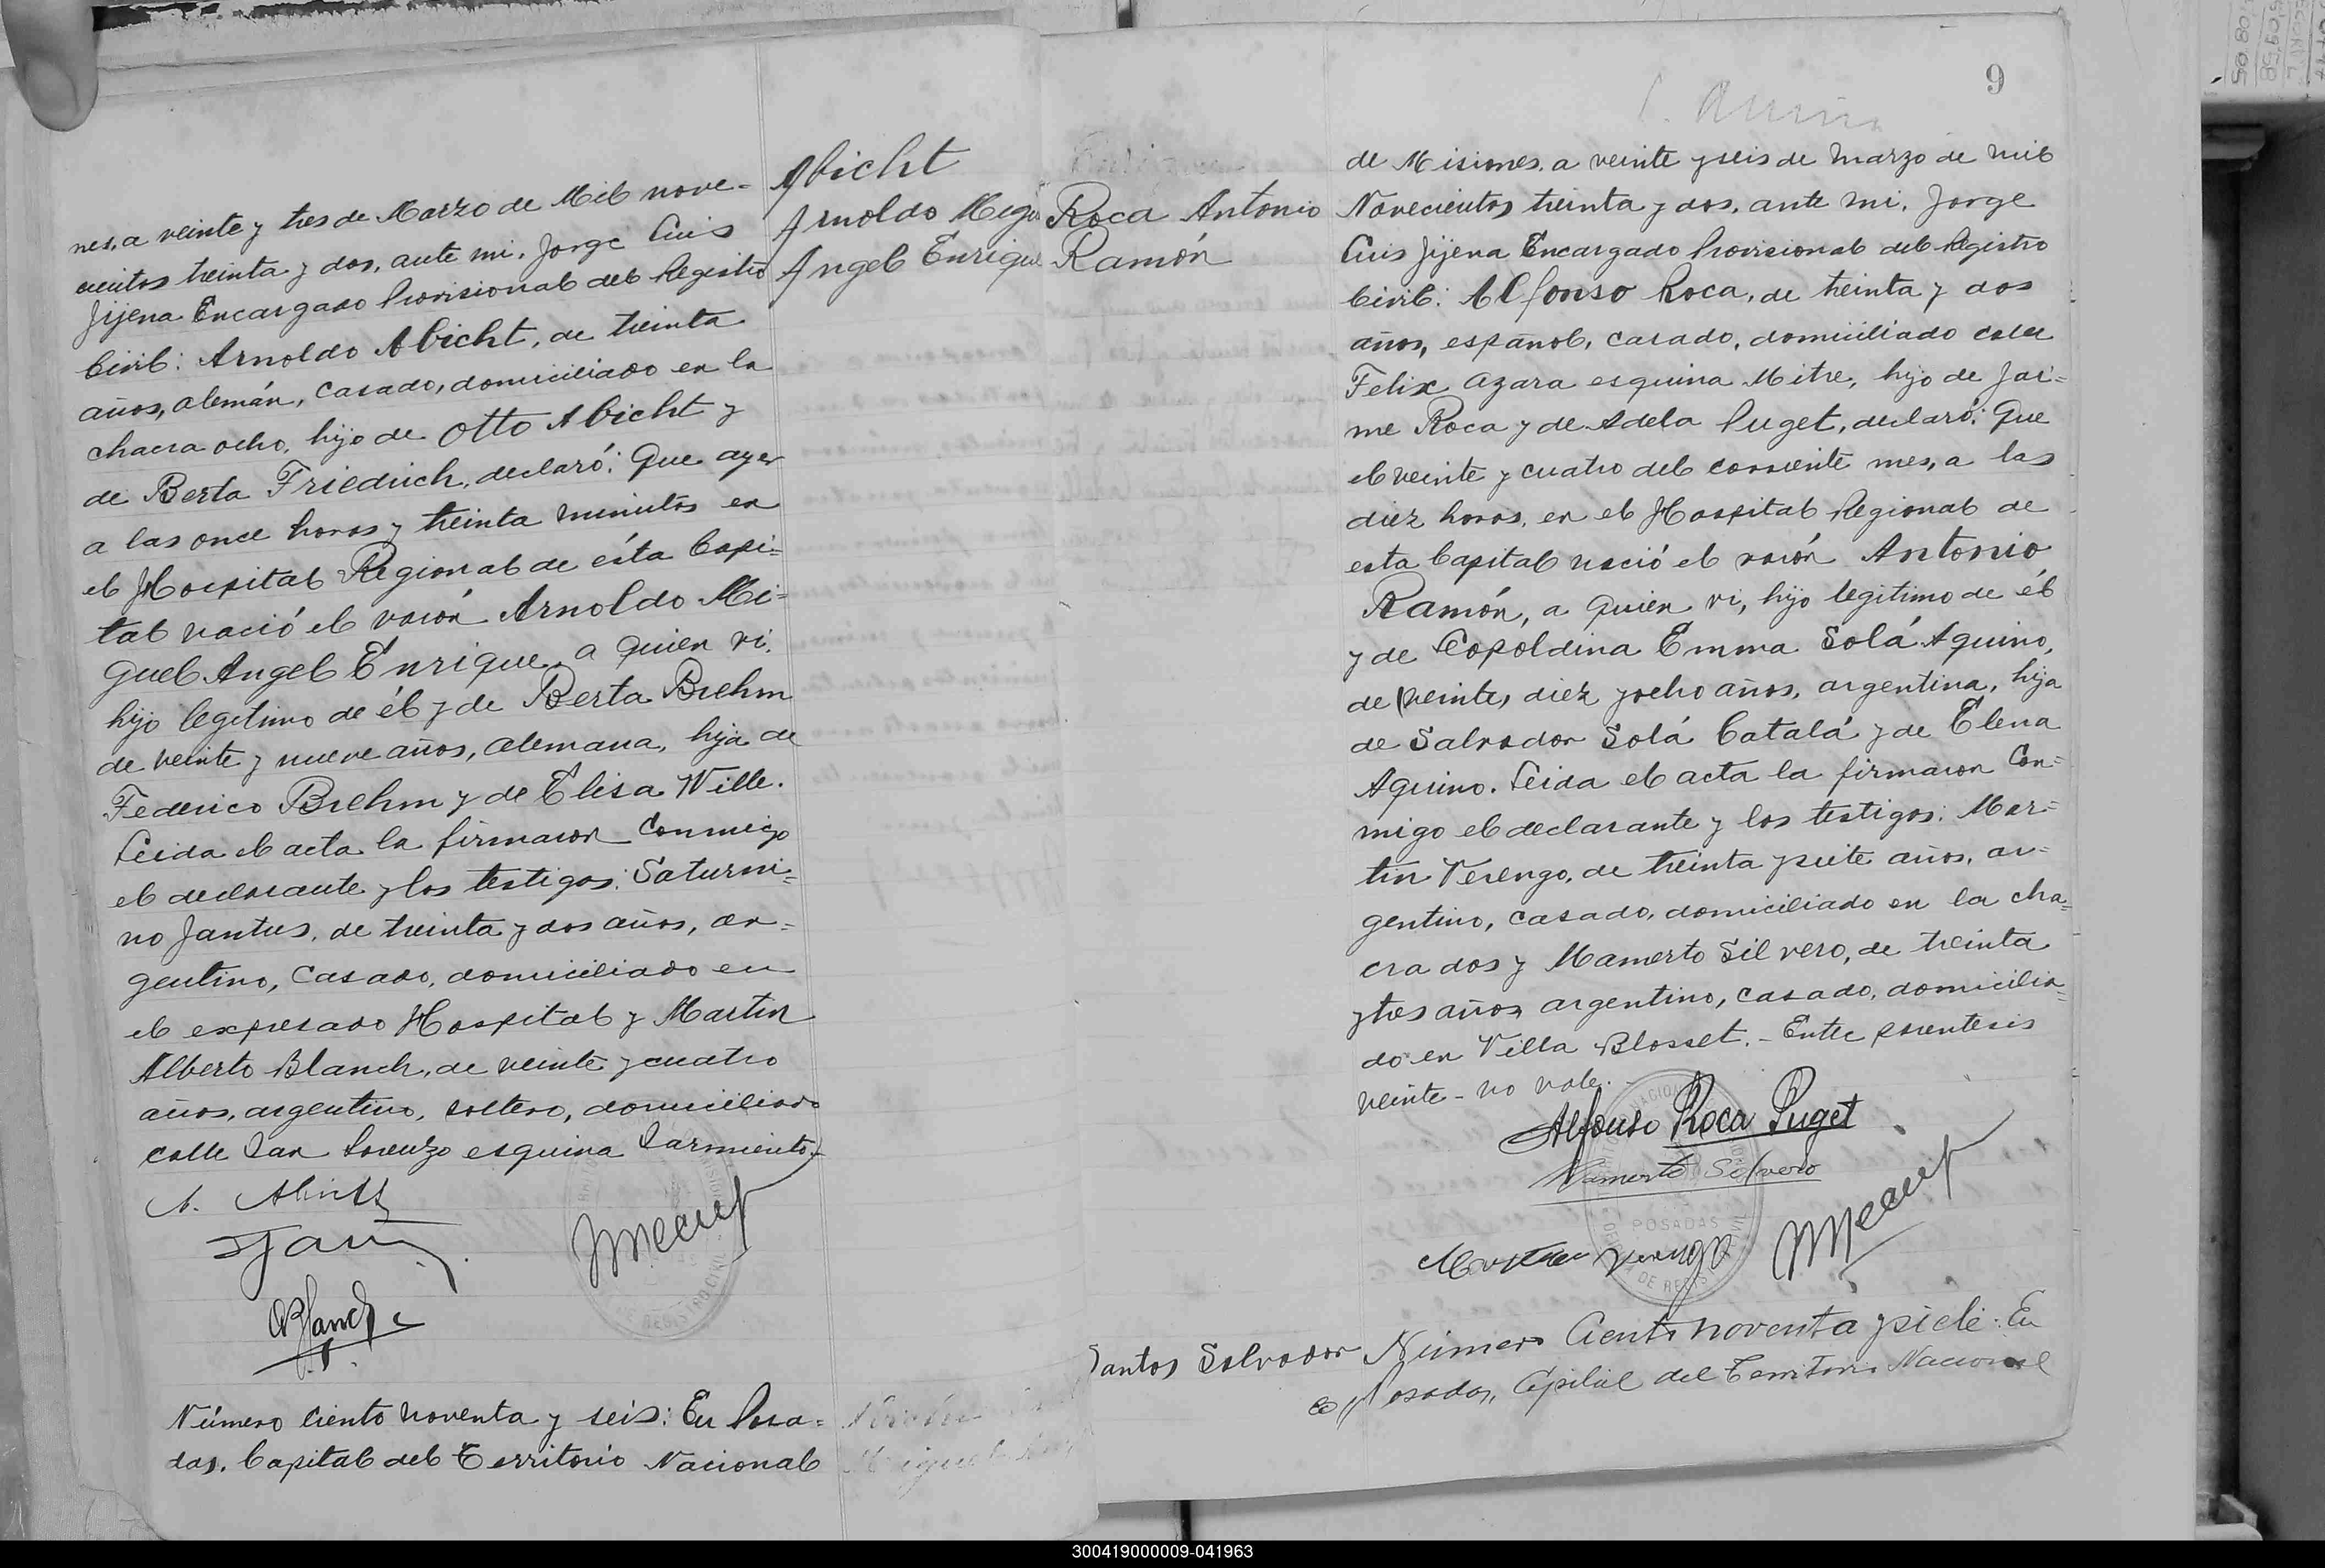 nes, a veinte y tres de Marzo de Mil nove-
cientos treinta y dos, ante mi, Jorge Luis
Jijena Encargado Provisional del Registro
Civil: Arnoldo Abicht, de treinta
años, alemán, casado, domiciliado en la
chacra ocho, hijo de Otto Abicht y
de Berta Friedrich, declaró: Que ayer
a las once horas y treinta minutos en
el Hospital Regional de ésta Capi=
tal nació el varón Arnoldo Mi=
guel Angel Enrique, a quien vi,
hijo legitimo de él y de Berta Brehm
de veinte y nueve años, alemana, hija de
Federico Brehm y de Elisa Wille.
Leida el acta la firmaron conmigo
el declarante y los testigos: Saturni=
no Jantus, de treinta y dos años, ar=
gentino, casado, domiciliado en
el expresado Hospital y Martin
Alberto Blanch, de veinte y cuatro
años, argentino, soltero, domiciliado
calle San Lorenzo esquina Sarmiento.-
Número ciento noventa y seis: En Posa=
das, Capital del Territorio Nacional
Abicht
Arnoldo Migu
Angel Enrique
9
Roca Antonio
Ramón
de Misiones, a veinte y seis de Marzo de mil
Novecientos treinta y dos, ante mi, Jorge
Luis Jijena Encargado Provisional del Registro
Civil: Alfonso Roca, de treinta y dos
años, español, casado, domiciliado calle
Felix Azara esquina Mitre, hijo de Jai=
me Roca y de Adela Puget, declaró: Que
el veinte y cuatro del corriente mes, a las
diez horas, en el Hospital Regional de
esta Capital nació el varón Antonio
Ramón, a quien vi, hijo legitimo de él
y de Leopoldina Emma Solá Aquino,
de (veinte) diez y ocho años, argentina, hija
de Salvador Solá Catalá y de Elena
Aquino. Leida el acta la firmaron con=
migo el declarante y los testigos: Mar=
tin Verengo, de treinta y siete años, ar-
gentino, casado, domiciliado en la cha=
cra dos y Mamerto Silvero, de treinta
y tres años argentino, casado, domicilia=
do en Villa Blosset.- Entre parentesis
veinte - no vale.-
Alfonso Roca Puget
Mamerto Silvero
POSADAS
Martin Verengo
Santos Salvador
Número Ciento noventa y siete: En
Posadas, Capital del Territorio Nacional
300419000009-041963